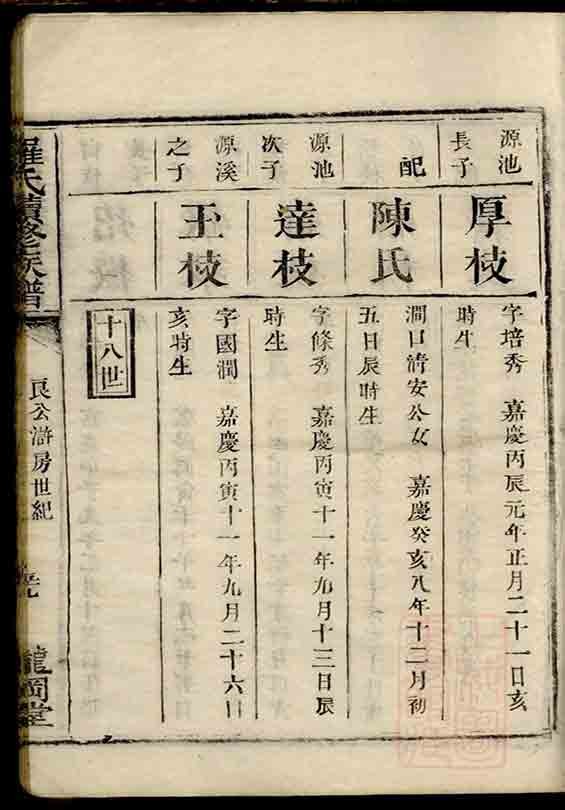 源池
長子
厚枝
字培秀　嘉慶丙辰元年正月二十一日亥
時生
配
陳氏
澗口清安公女　嘉慶癸亥八年十二月初
五日辰時生
源池
次子
達枝
字條秀　嘉慶丙寅十一年九月十三日辰
時生
源溪
之子
玉枝
字國潤　嘉慶丙寅十一年九月二十六日
亥時生
十八世
羅氏續修族譜
良公滸房世紀
龍岡堂